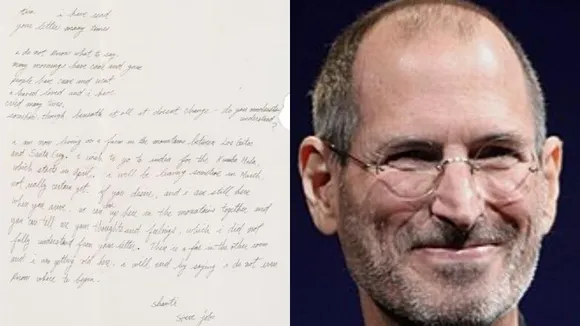 tim i have read
your letter many times
i do not know what to say.
many mornings have come and gone
people have came and went
i have loved and i have
cried many times.
somehow, though, beneath it all it doesnt change - do you
understand?
i am now living on a farm in the mountains between Los Gatos
and Santa Cruz. i wish to go to india for the Kumba Mela,
which starts in April. i will be leaving sometime in March,
not really certain yet. if you desire, and i am still here
when you come, we can be here in the mountains together and
you can tell me your thoughts and feelings, which i did not
fully understand from your letter. There is a fire in the other room
and i am getting cold here. i will end by saying i do not even
know where to begin.
shanti
steve jobs